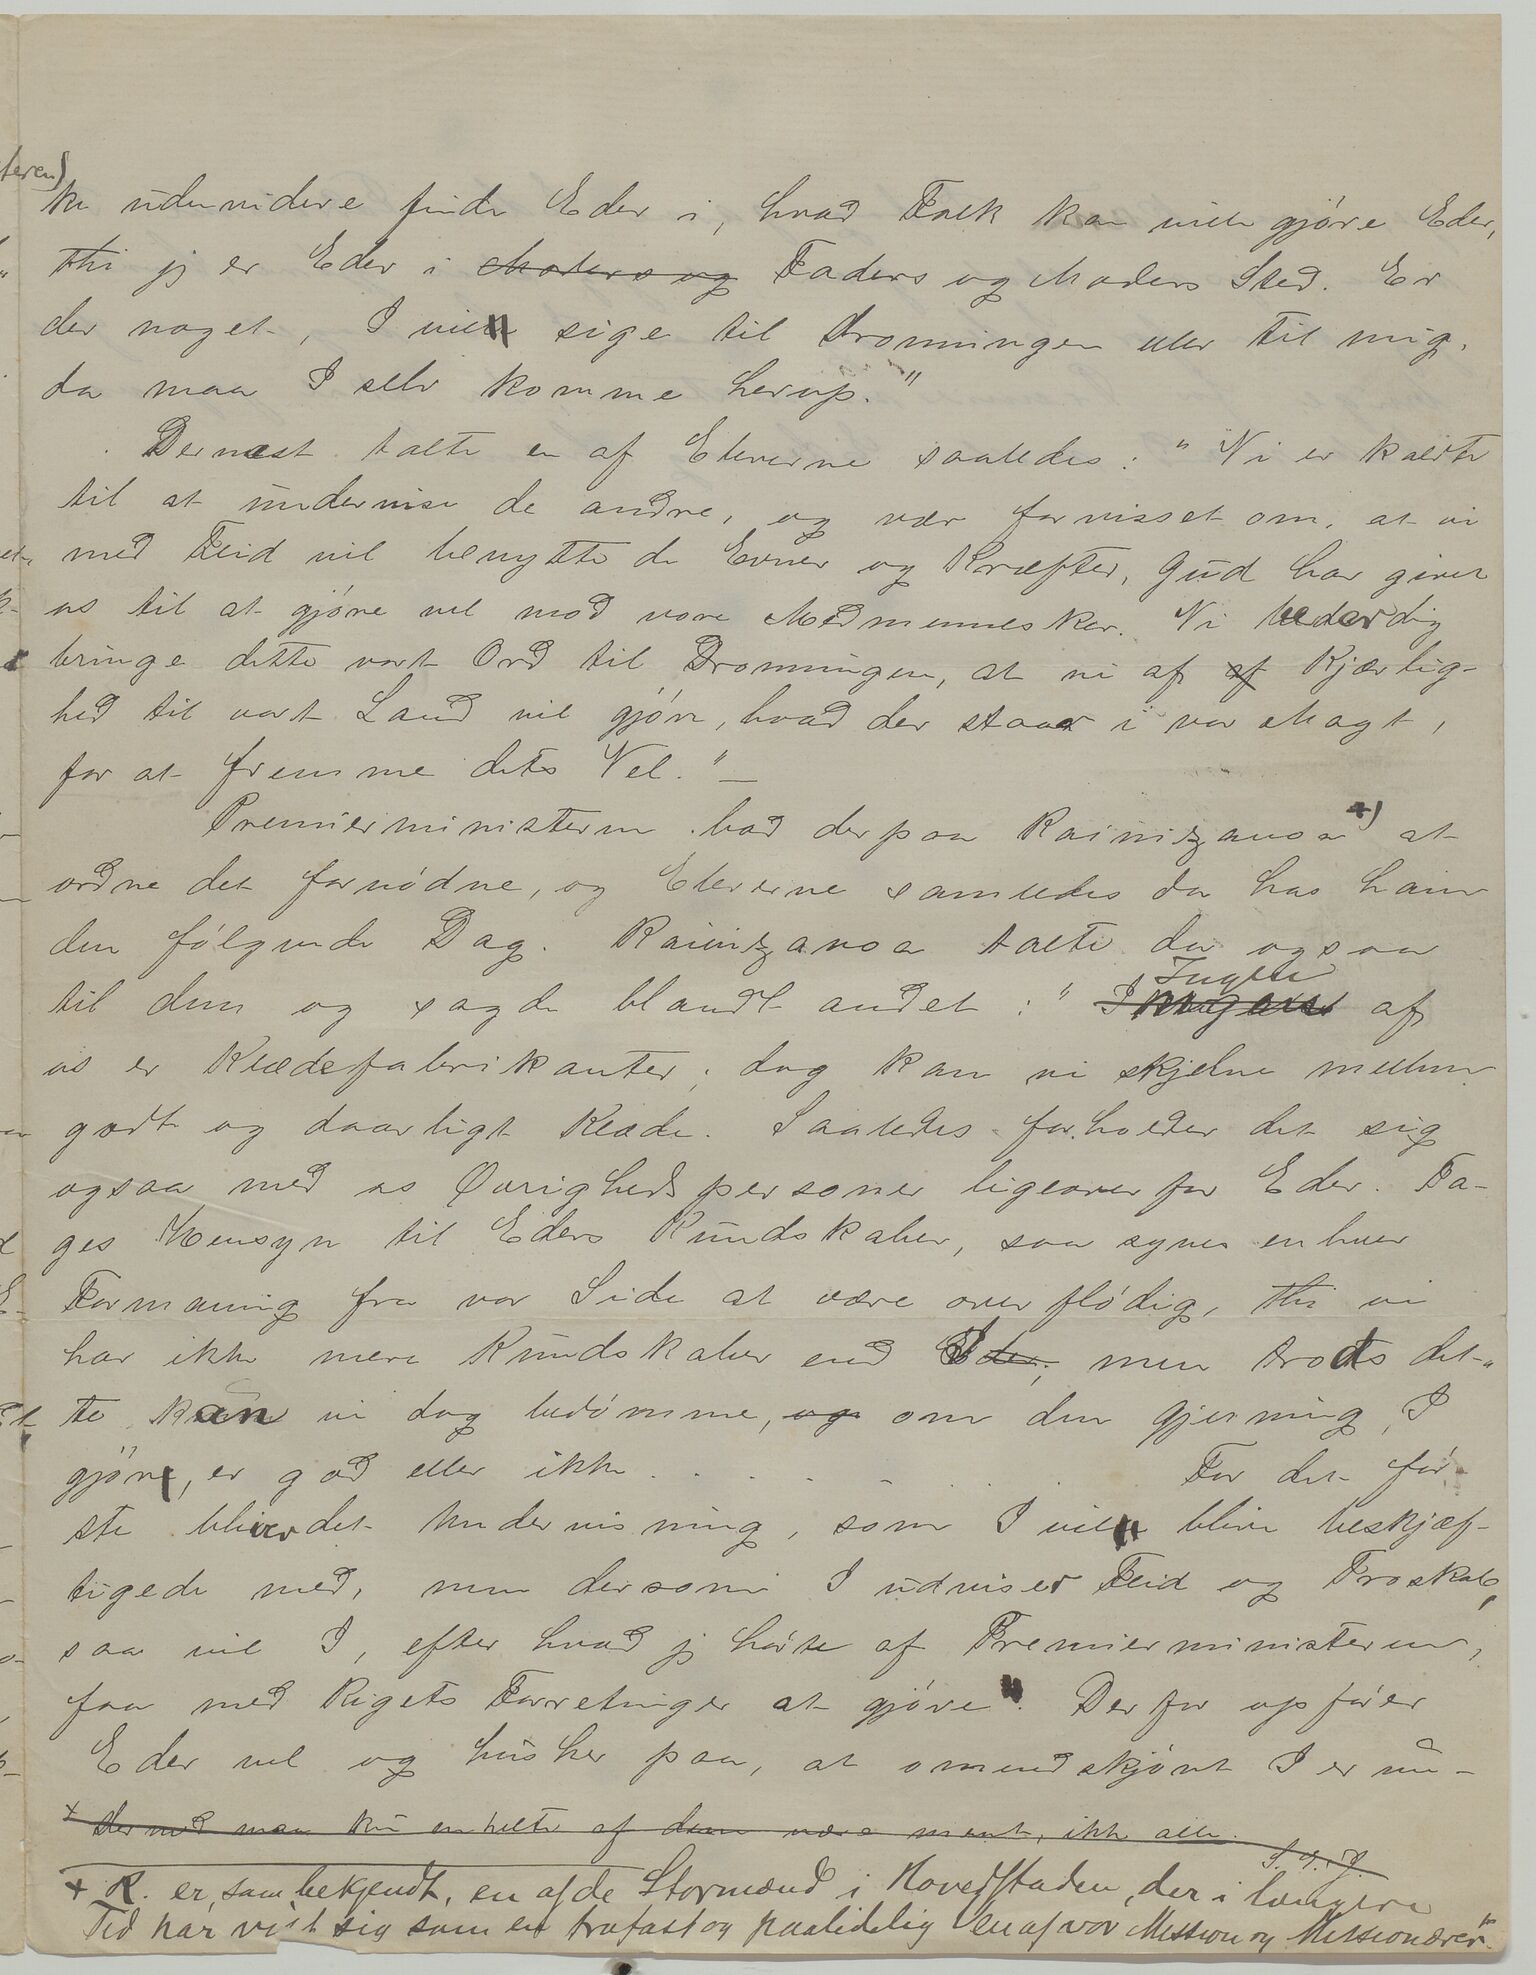 ke udenvidere finde Eder i, hvad Folk kan ville gjøre Eder,
thi jeg er Eder i Moders og Faders og Moders Sted. Er
der noget, I vil sige til Dronningen eller til mig,
da maa I selv komme herop."
Dernæst talte en af Eleverne saaledes: "Vi er kaldte
til at undervise de andre, og vær forvisset om, at vi
med Flid vil benytte de Evner og Kræfter, Gud har givet
os til at gjøre vel mod vore Medmennesker. Vi beder dig
bringe dette vort Ord til Dronningen, at vi af af Kjærlig-
hed til vort Land vil gjøre, hvad der staar i vor Magt,
for at fremme dets Vel." —
Premierministeren bad derpaa Rainizanoa +) at
ordne det fornødne, og Eleverne samledes da hos ham
den følgende Dag. Rainizanoa talte da ogsaa
til dem og sagde blandt andet: " Ingen af
os er Klædefabrikanter, dog kan vi skjelne mellem
godt og daarligt Klæde. Saaledes forholder det sig
ogsaa med os Øvrighedspersoner ligeoverfor Eder. Ta-
ges Hensyn til Eders Kundskaber, saa synes enhver
Formaning fra vor Side at være overflødig, thi vi
har ikke mere Kundskaber end I, men trods det-
te kan vi dog bedømme, og om den Gjerning, I
gjør, er god eller ikke . . . . . . . For det før-
ste bliver det Undervisning, som I vil blive beskjæf-
tigede med, men dersom I udviser Flid og Troskab,
saa vil I, efter hvad jeg hørte af Premierministeren,
faa med Rigets Forretninger at gjøre". Derfor opfør
Eder vel og husker paa, at omendskjønt I er un-
+ Dermed maa kun enkelte af dem være ment, ikke alle.
+ R. er, som bekjendt, en af de Stormænd i Hovedstaden, der i længere
Tid har vist sig som en trofast og paalidelig Ven af vor Mission og Missionærer